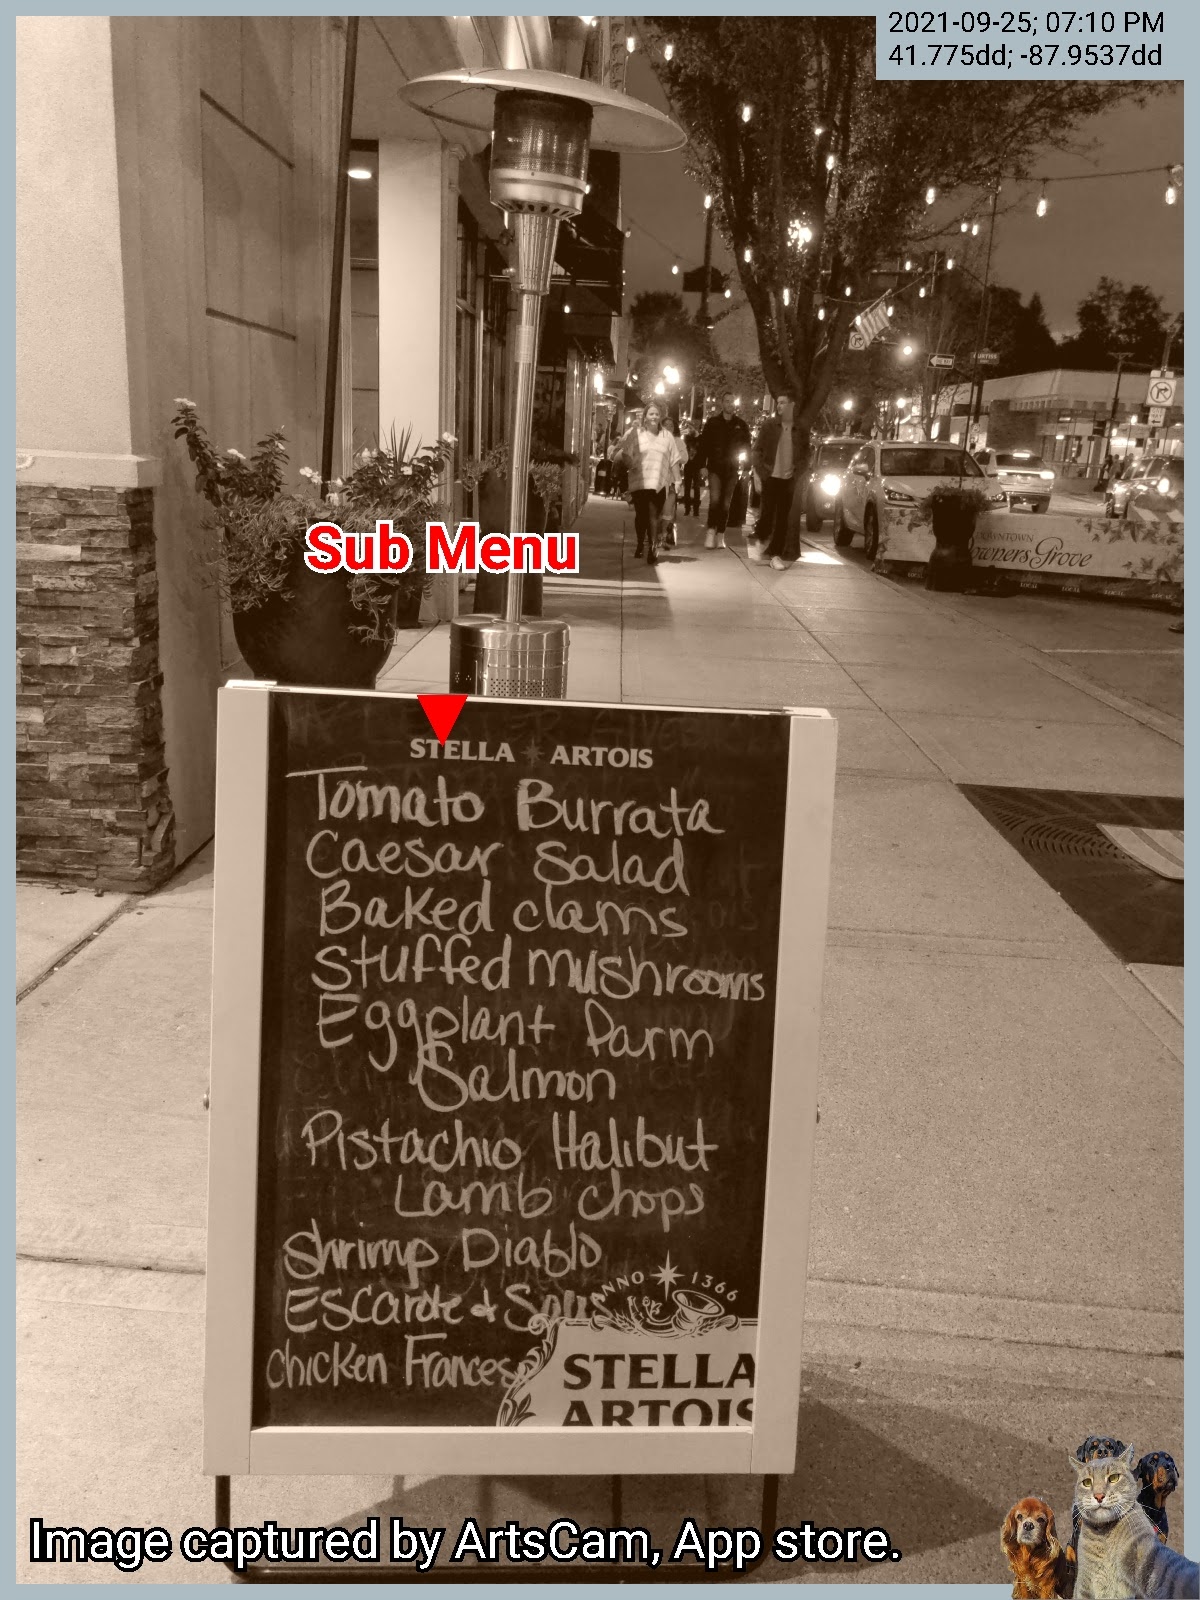 2021-09-25; 07:10 PM
41.775dd; -87.9537dd
DOWNTOWN
owners Grove
LOCAL
LOCAL
LOCAL
Sub Menu
STELLA ARTOIS
Tomato Burrata
Caesar Salad
Baked clams
Stuffed mushrooms
Eggplant Parm
Salmon
Pistachio Halibut
Lamb chops
Shrimp Diablo
&
Chicken Frances
ANNO 1366
STELLA
ARTOIS
Image captured by ArtsCam, App store.